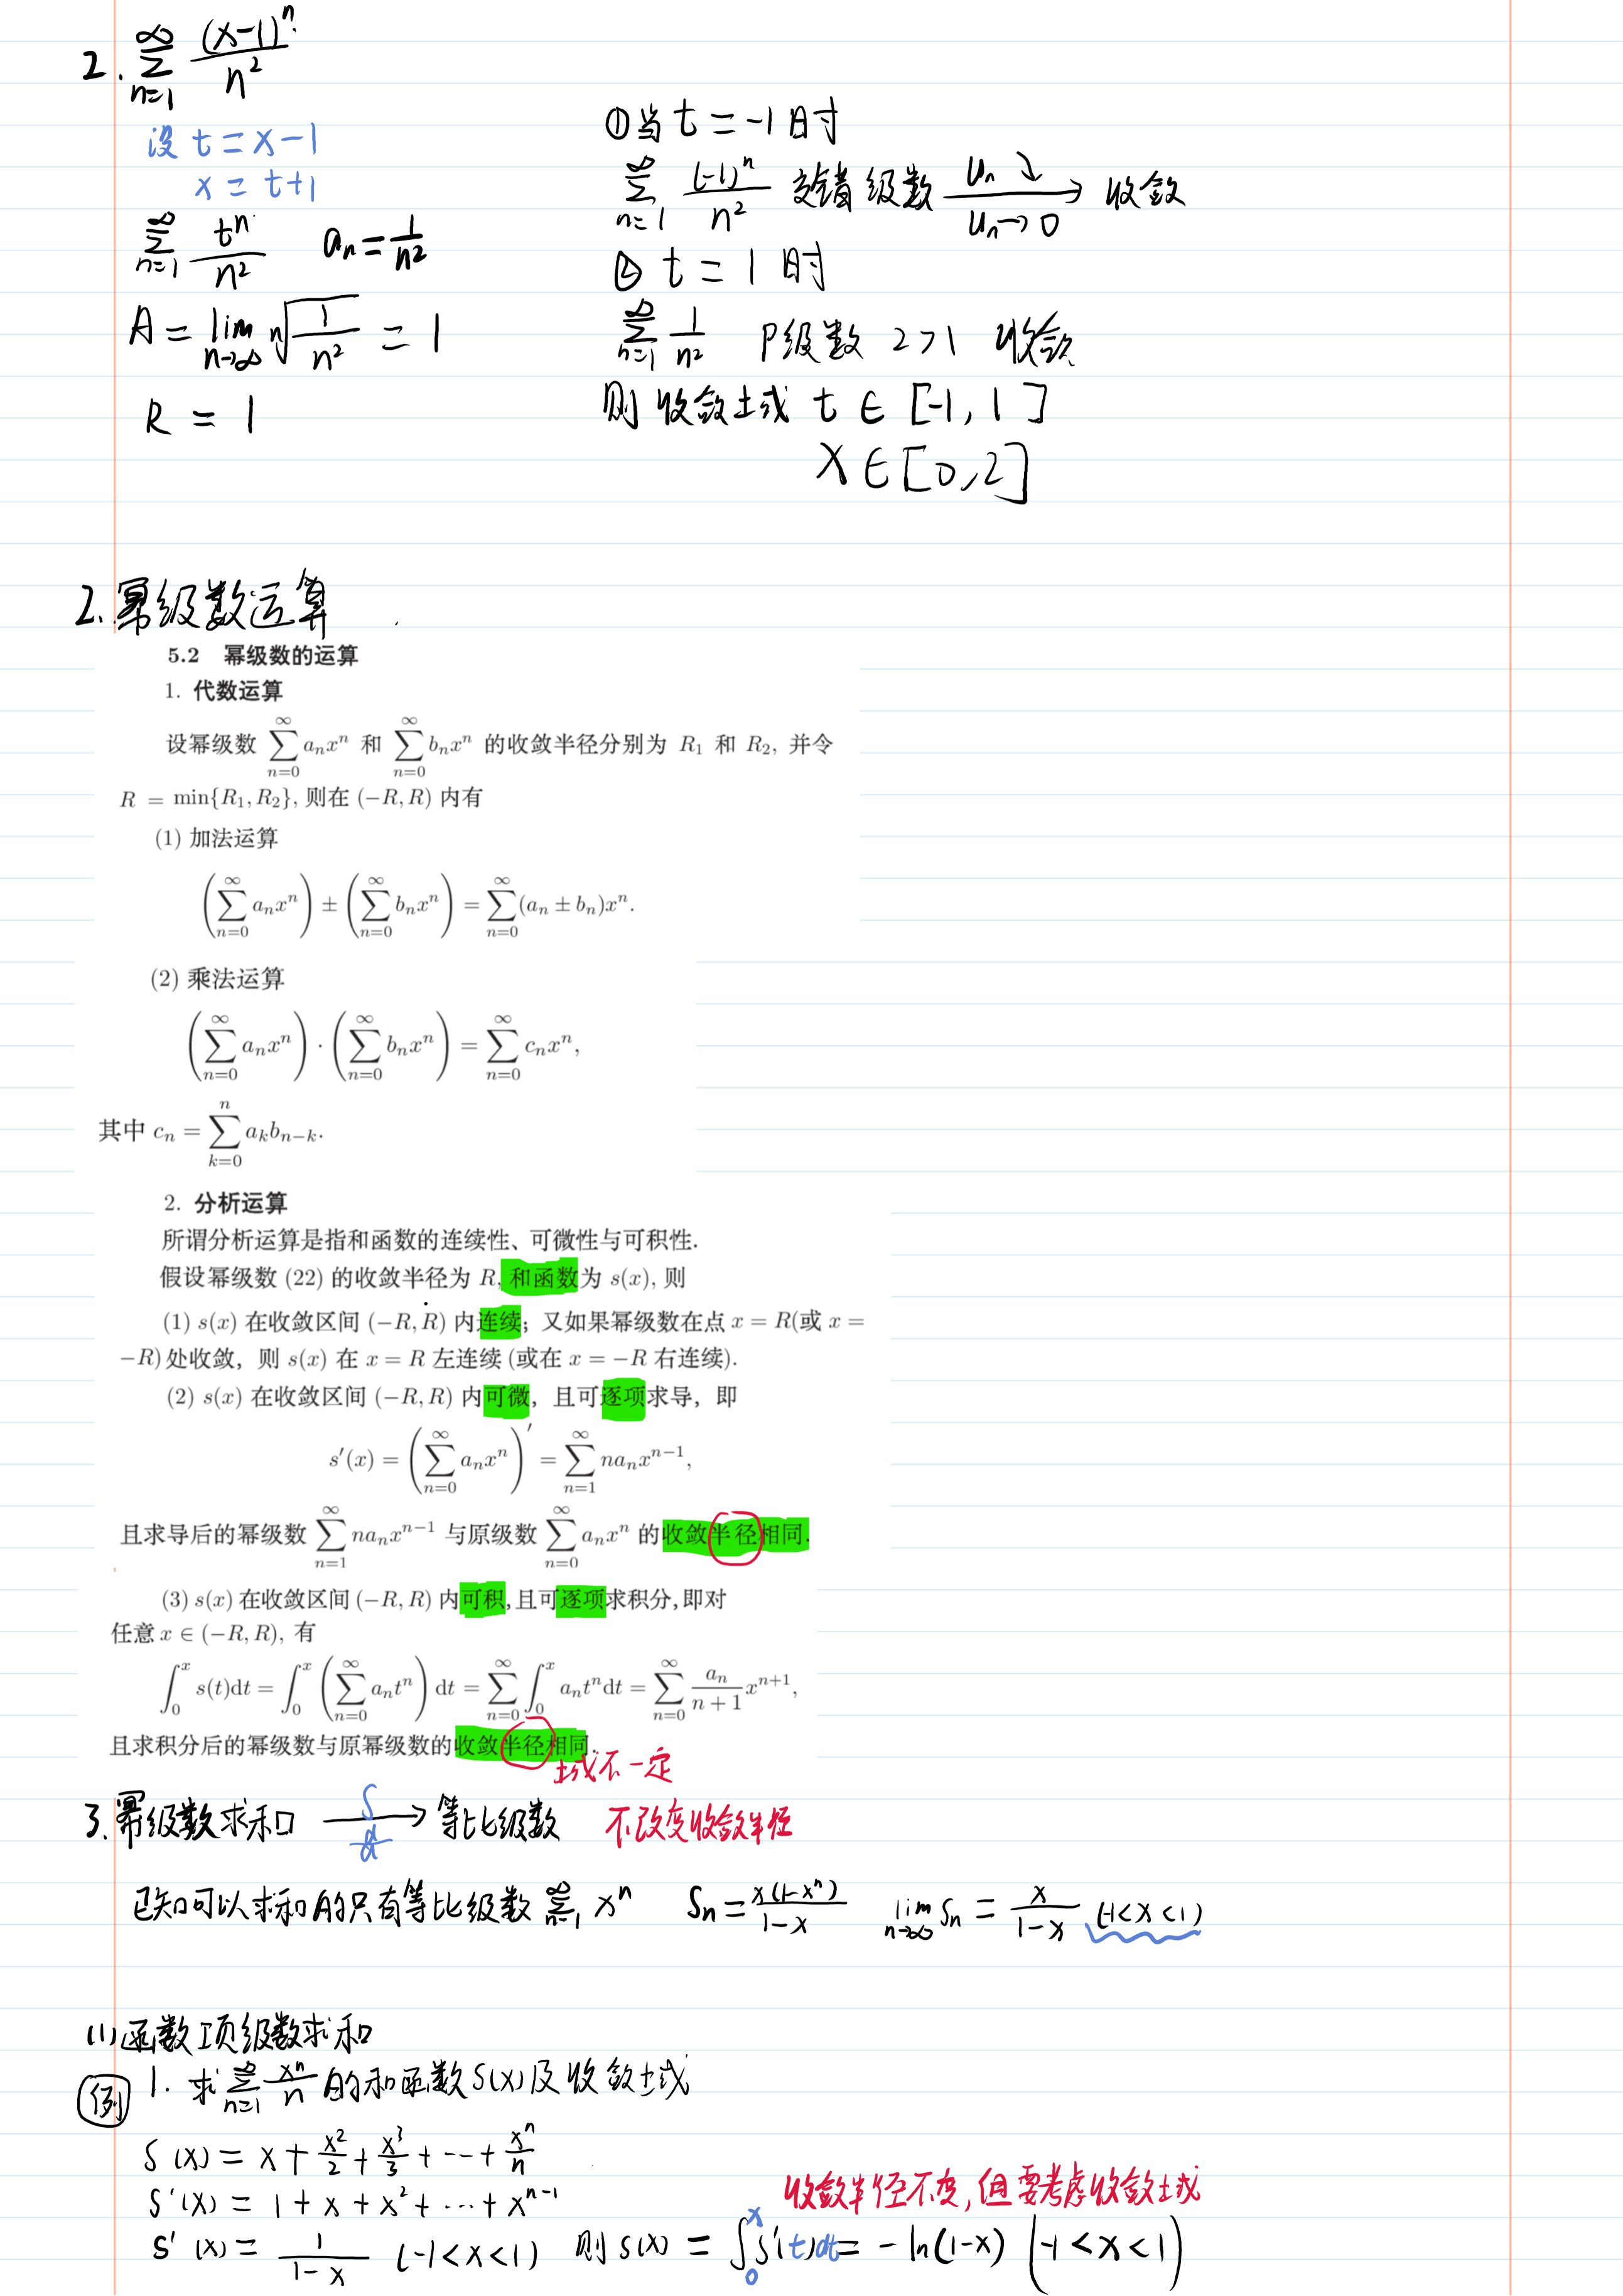 2. $\sum_{n=1}^{\infty} \frac{(x-1)^n}{n^2}$
设 t = x-1
x = t+1
$\sum_{n=1}^{\infty} \frac{t^n}{n^2}$ $a_n = \frac{1}{n^2}$
$A = \lim_{n\to\infty} \sqrt[n]{\frac{1}{n^2}} = 1$
R = 1
① 当 t = -1 时
$\sum_{n=1}^{\infty} \frac{(-1)^n}{n^2}$ 交错级数 $\xrightarrow[u_n \to 0]{u_n \searrow}$ 收敛
② t = 1 时
$\sum_{n=1}^{\infty} \frac{1}{n^2}$ P级数 2>1 收敛
则收敛域 t ∈ [-1, 1]
x ∈ [0, 2]
2. 幂级数运算
5.2 幂级数的运算
1. 代数运算
设幂级数 $\sum_{n=0}^{\infty} a_n x^n$ 和 $\sum_{n=0}^{\infty} b_n x^n$ 的收敛半径分别为 $R_1$ 和 $R_2$, 并令
$R = \min\{R_1, R_2\}$, 则在 (−R, R) 内有
(1) 加法运算
$\left(\sum_{n=0}^{\infty} a_n x^n\right) \pm \left(\sum_{n=0}^{\infty} b_n x^n\right) = \sum_{n=0}^{\infty} (a_n \pm b_n) x^n.$
(2) 乘法运算
$\left(\sum_{n=0}^{\infty} a_n x^n\right) \cdot \left(\sum_{n=0}^{\infty} b_n x^n\right) = \sum_{n=0}^{\infty} c_n x^n,$
其中 $c_n = \sum_{k=0}^{n} a_k b_{n-k}.$
2. 分析运算
所谓分析运算是指和函数的连续性、可微性与可积性.
假设幂级数 (22) 的收敛半径为 R, 和函数为 s(x), 则
(1) s(x) 在收敛区间 (−R, R) 内连续; 又如果幂级数在点 x = R(或 x =
−R) 处收敛, 则 s(x) 在 x = R 左连续 (或在 x = −R 右连续).
(2) s(x) 在收敛区间 (−R, R) 内可微, 且可逐项求导, 即
$s'(x) = \left(\sum_{n=0}^{\infty} a_n x^n\right)' = \sum_{n=1}^{\infty} n a_n x^{n-1},$
且求导后的幂级数 $\sum_{n=1}^{\infty} n a_n x^{n-1}$ 与原级数 $\sum_{n=0}^{\infty} a_n x^n$ 的收敛半径相同.
(3) s(x) 在收敛区间 (−R, R) 内可积, 且可逐项求积分, 即对
任意 x ∈ (−R, R), 有
$\int_0^x s(t)\mathrm{d}t = \int_0^x \left(\sum_{n=0}^{\infty} a_n t^n\right) \mathrm{d}t = \sum_{n=0}^{\infty} \int_0^x a_n t^n \mathrm{d}t = \sum_{n=0}^{\infty} \frac{a_n}{n+1} x^{n+1},$
且求积分后的幂级数与原幂级数的收敛半径相同.
域不一定
3. 幂级数求和 $\xrightarrow[d]{\int}$ 等比级数 不改变收敛半径
已知可以求和的只有等比级数 $\sum_{n=1}^{\infty} x^n$ $S_n = \frac{x(1-x^n)}{1-x}$ $\lim_{n\to\infty} S_n = \frac{x}{1-x}$ (-1<x<1)
(1) 函数项级数求和
例 1. 求 $\sum_{n=1}^{\infty} \frac{x^n}{n}$ 的和函数S(x)及收敛域
$S(x) = x + \frac{x^2}{2} + \frac{x^3}{3} + \cdots + \frac{x^n}{n}$
$S'(x) = 1 + x + x^2 + \cdots + x^{n-1}$
收敛半径不变, 但要考虑收敛域
$S'(x) = \frac{1}{1-x}$ (-1<x<1) 则 $S(x) = \int_0^x S'(t)dt = -\ln(1-x)$ (-1<x<1)